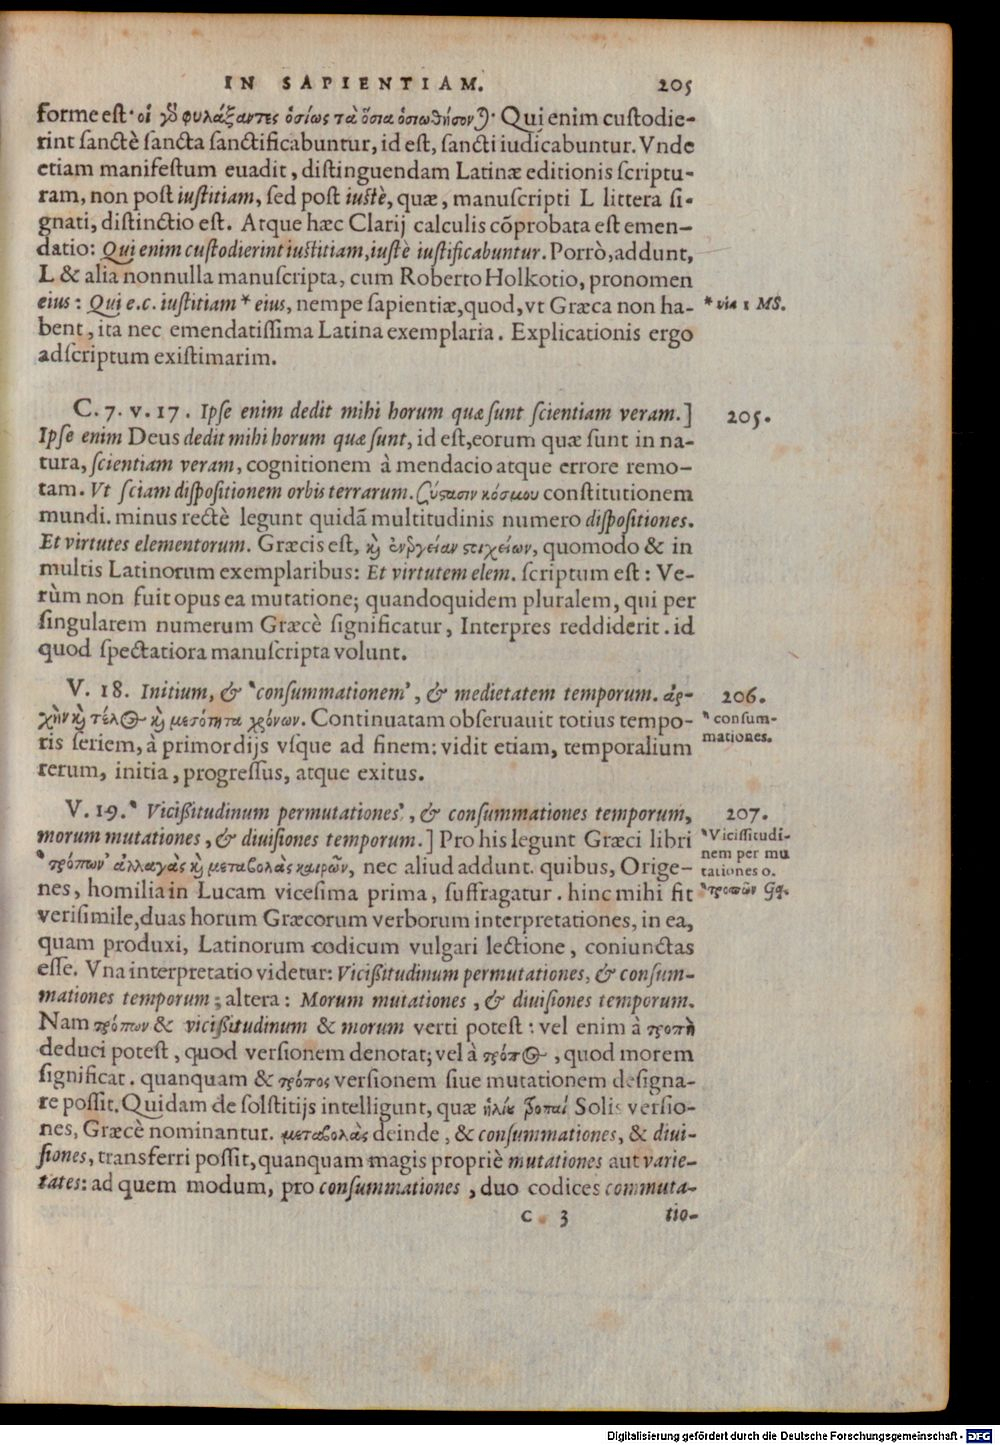 IN SAPIENTIAM. 205
forme est· οἱ γὸ φυλάξαντες ὁσίως τὰ ὅσια ὁσιωθήσον)· Qui enim custodie-
rint sanctè sancta sanctificabuntur, id est, sancti iudicabuntur. Vnde
etiam manifestum euadit, distinguendam Latinæ editionis scriptu-
ram, non post iustitiam, sed post iustè, quæ, manuscripti L littera si-
gnati, distinctio est. Atque hæc Clarij calculis cōprobata est emen-
datio: Qui enim custodierint iustitiam, iustè iustificabuntur. Porrò, addunt,
L & alia nonnulla manuscripta, cum Roberto Holkotio, pronomen
eius: Qui e.c. iustitiam * eius, nempe sapientiæ, quod, vt Græca non ha-
* via 1 MS.
bent, ita nec emendatissima Latina exemplaria. Explicationis ergo
adscriptum existimarim.
C. 7. v. 17. Ipse enim dedit mihi horum quæ sunt scientiam veram.]
205.
Ipse enim Deus dedit mihi horum quæ sunt, id est, eorum quæ sunt in na-
tura, scientiam veram, cognitionem à mendacio atque errore remo-
tam. Vt sciam dispositionem orbis terrarum. σύστασιν κόσμου constitutionem
mundi. minus rectè legunt quidā multitudinis numero dispositiones.
Et virtutes elementorum. Græcis est, κὶ ἐνέργειαν στιχείων, quomodo & in
multis Latinorum exemplaribus: Et virtutem elem. scriptum est: Ve-
rùm non fuit opus ea mutatione; quandoquidem pluralem, qui per
singularem numerum Græcè significatur, Interpres reddiderit. id
quod spectatiora manuscripta volunt.
V. 18. Initium, & ‛consummationem’, & medietatem temporum. ἀρ-
206.
χὴν κὶ τέλος κὶ μεσότητα χρόνων. Continuatam obseruauit totius tempo-
‛ consum-
mationes.
ris seriem, à primordijs vsque ad finem: vidit etiam, temporalium
rerum, initia, progressus, atque exitus.
V. 19. ‛ Vicißitudinum permutationes’, & consummationes temporum,
207.
morum mutationes, & diuisiones temporum.] Pro his legunt Græci libri
‛Vicissitudi-
nem per mu
tationes o.
‛τρόπων’ ἀλλαγὰς κὶ μεταβολὰς καιρῶν, nec aliud addunt. quibus, Orige-
nes, homilia in Lucam vicesima prima, suffragatur. hinc mihi fit
‛τροπῶν Gq.
verisimile, duas horum Græcorum verborum interpretationes, in ea,
quam produxi, Latinorum codicum vulgari lectione, coniunctas
esse. Vna interpretatio videtur: Vicißitudinum permutationes, & consum-
mationes temporum; altera: Morum mutationes, & diuisiones temporum.
Nam τρόπων & vicißitudinum & morum verti potest: vel enim à τροπὴ
deduci potest, quod versionem denotat; vel à τρόπος, quod morem
significat. quanquam & τρόπος versionem siue mutationem designa-
re possit. Quidam de solstitijs intelligunt, quæ ἡλίȣ τροπαί Solis versio-
nes, Græcè nominantur. μεταβολὰς deinde, & consummationes, & diui-
siones, transferri possit, quanquam magis propriè mutationes aut varie-
tates: ad quem modum, pro consummationes, duo codices commuta-
C 3 tio-
Digitalisierung gefördert durch die Deutsche Forschungsgemeinschaft - DFG